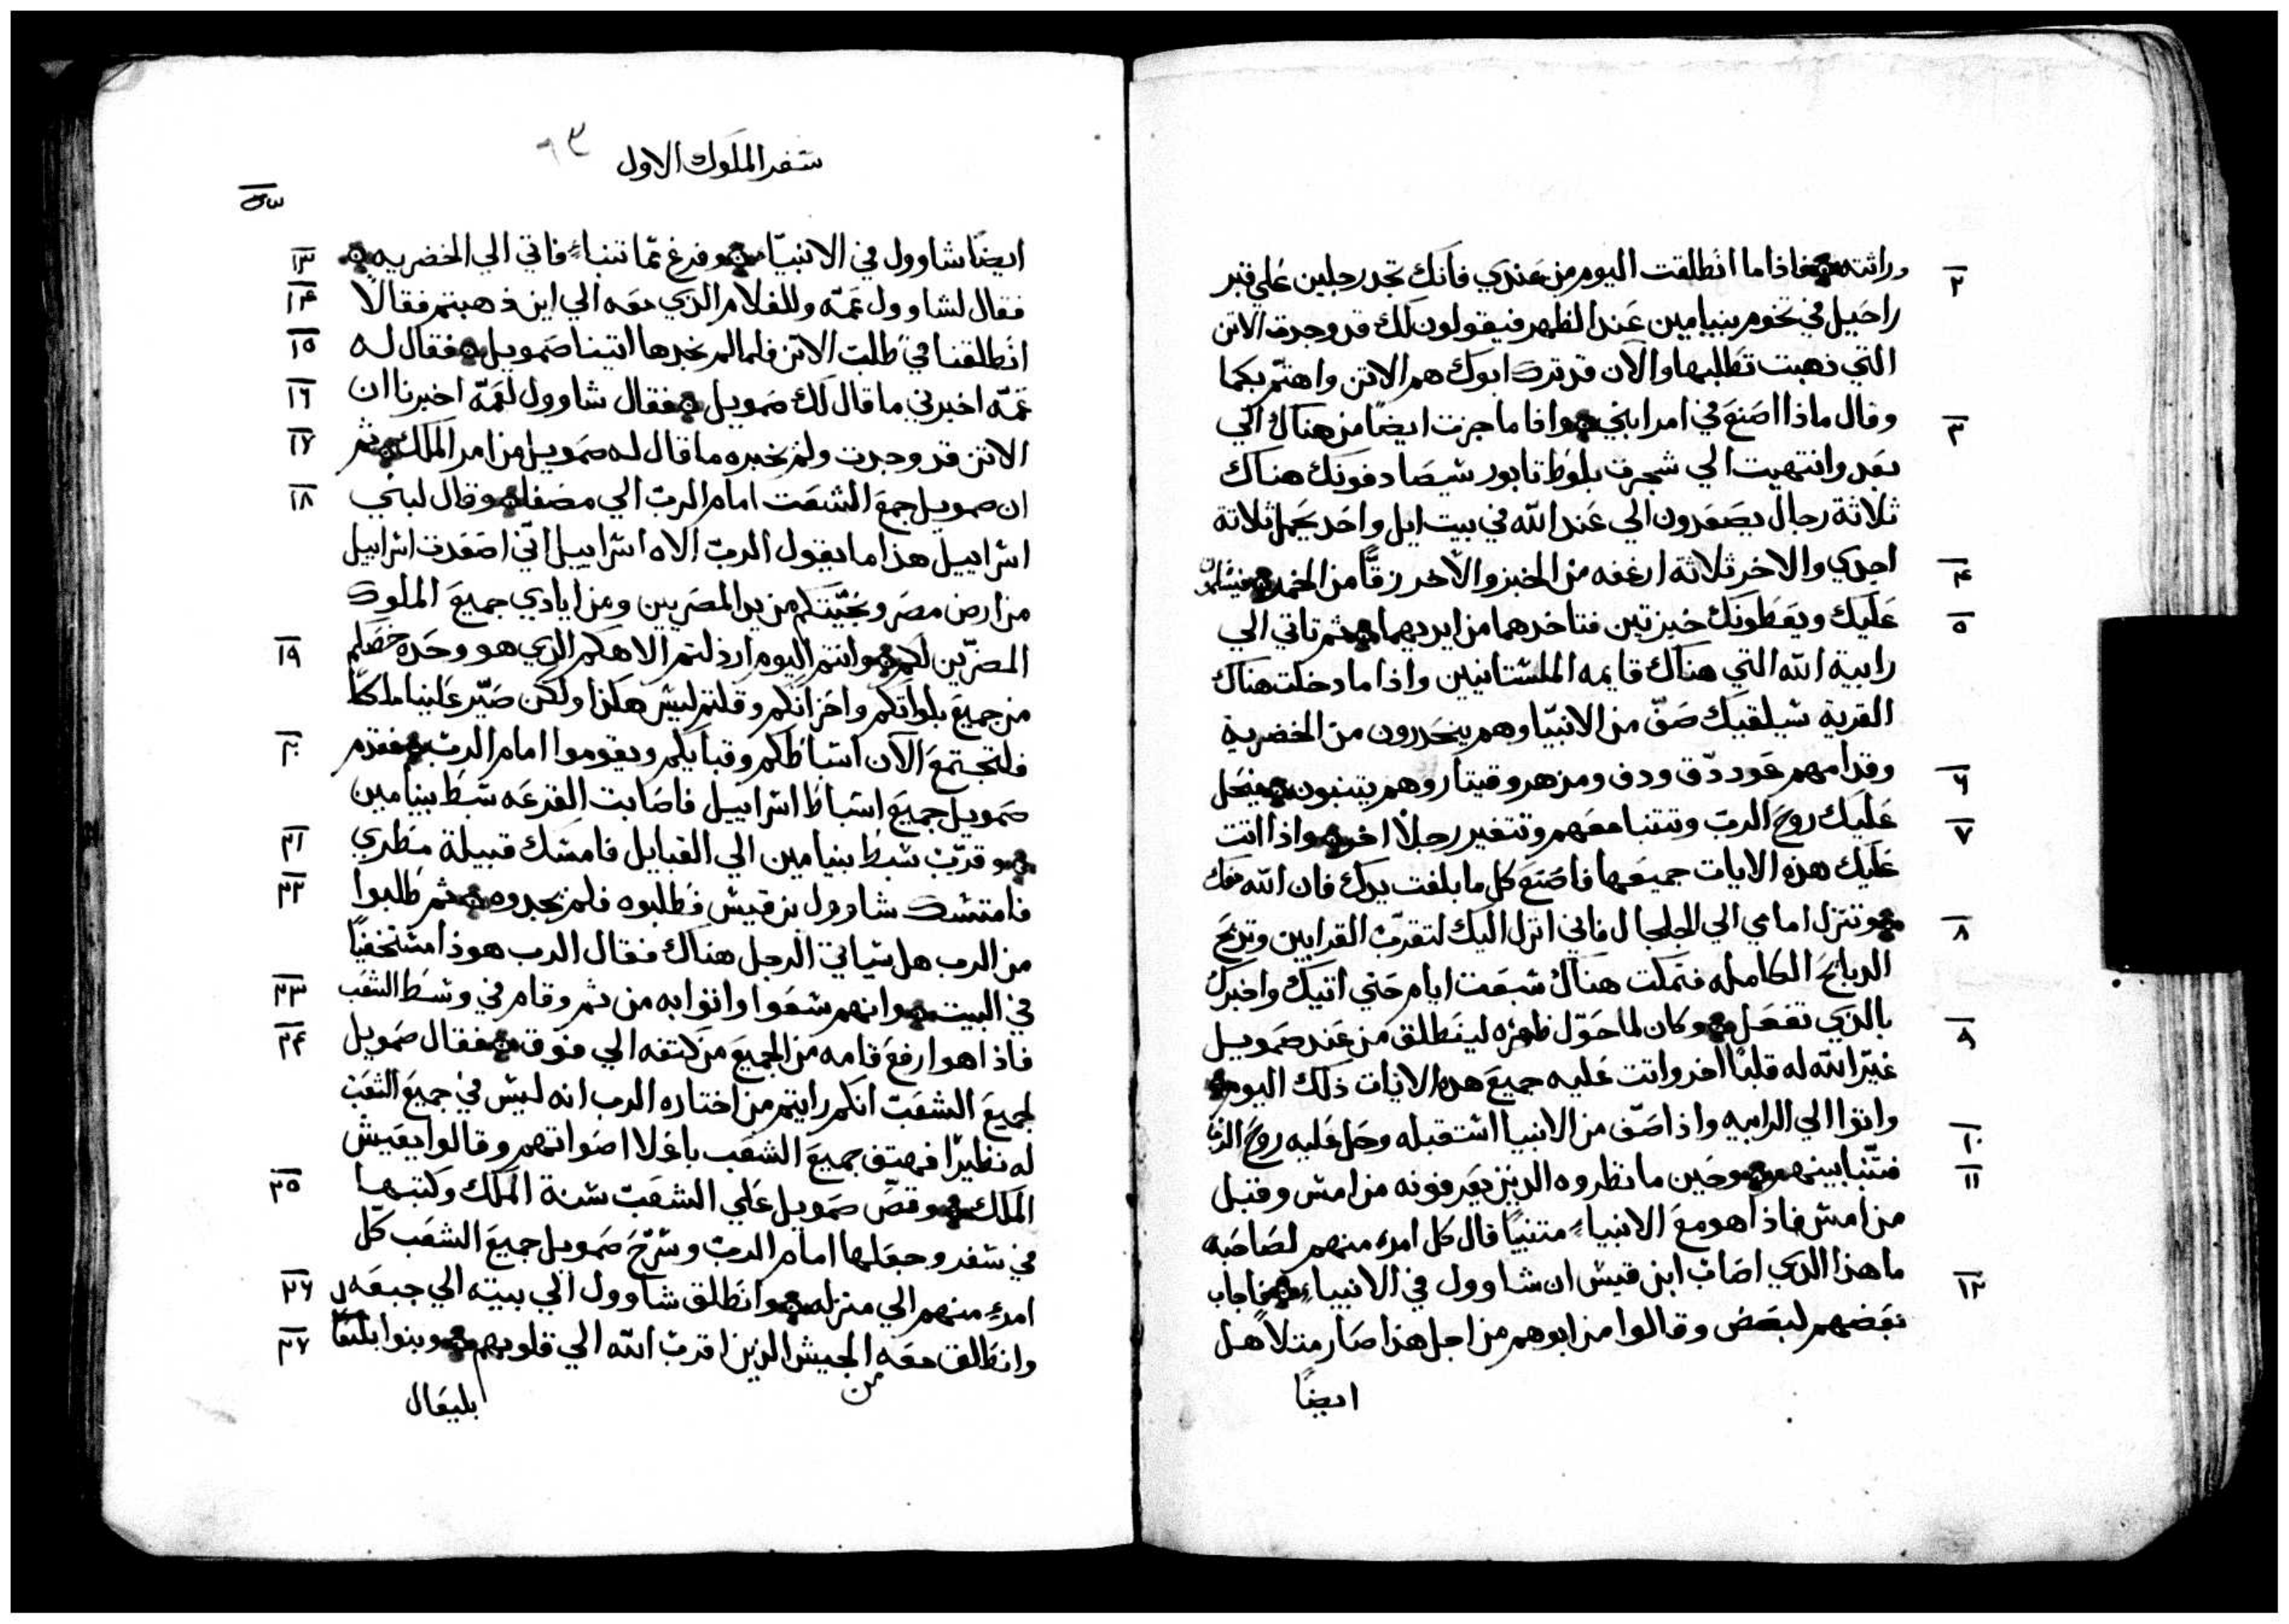 وراثته فاذا ما انطلقت اليوم من عندي فانك تجد رجلين علي قبر
٢
راحيل في تخوم بنيامين عند الظهر فيقولون لك قد وجدت الاتن
التي ذهبت تطلبها والآن قد ترك ابوك هم الاتن واهتم بكما
وقال ماذا اصنع في امر ابني واذا ما جزت ايضًا من هناك الي
٣
بعد وانتهيت الي شجرة بلوط تابور سيصادفونك هناك
ثلاثة رجال يصعدون الي عند الله في بيت ايل واحد يحمل ثلاثة
اجدي والاخر ثلاثة ارغفه من الخبز والآخر زقًّا من الخمر فيسلمون
٤
عليك ويعطونك خبزتين فتاخدهما من ايديهما ثم تاتي الي
٥
رابية الله التي هناك قايمه الفلسطانيين واذا ما دخلت هناك
القرية سيلقيك صفّ من الانبيّا وهم ينحدرون من الخضرية
وقدامهم عود دّف ودف ومزهر وقيتار وهم يتنبون فيحل
٦
عليك روح الربّ وتتنبا معهم وتتغير رجلًا اخر واذا اتت
٧
عليك هذه الايات جميعها فاصنع كل ما بلغت يدك فان الله معك
وتنزل امامي الي الجلجال فاني انزل اليك لتقرّب القرابين وتذبح
٨
الدبايح الكامله فتمكت هناك سبعت ايام حتي اتيك واخبرك
بالذي تفعل وكان لما حوّل ظهره لينطلق من عند صمويل
٩
غيّر الله له قلبًا اخر واتت عليه جميع هذه الايات ذلك اليوم
واتوا الي الرابيه واذا صفّ من الانبيا استقبله وحل عليه روح الله
١٠
فتنّبا بينهم وحين ما نظروه الذين يعرفونه من امس وقبل
١١
من امس فاذا هو مع الانبياء متنبيًا قال كل امرء منهم لصاحبه
ما هذا الذي اصاب ابن قيس ان شاوول في الانبياء فاجاب
١٢
بعضهم لبعض وقالوا من ابوهم من اجل هذا صار مثلًا هل
ايضًا
سفر الملوك الاول
٩٣
ايضًا شاوول في الانبيّا وفرغ ممّا تنباء فاتي الي الخضريه
١٣
فقال لشاوول عمّه وللغلام الذي معه الي اين ذهبتم فقالًا
١٤
انطلقنا في طلبت الاتن فلما لم نجدها اتينا صمويل فقال له
١٥
عمّه اخبرني ما قال لك صمويل فقال شاوول لعمّه اخبرنا ان
١٦
الاتن قد وجدت ولم يخبره ما قال له صمويل من امر الملك ثم
١٧
ان صمويل جمع الشعبت امام الربّ الي مصفا وقال لبني
١٨
اسراييل هذا ما يقول الربّ الاه اسراييل انّي اصعدت اسراييل
من ارض مصر ونجّيتكم من يد المصريين ومن ايادي جميع الملوك
المضرّين لكم وانتم اليوم ارذلتم الاهكم الذي هو وحده خصكم
١٩
من جميع بلواتكم واحزانكم وقلتم ليس هكذا ولكن صيّر علينا ملكًا
فلتجتمع الآن اسباطكم وقبايلكم ويقوموا امام الربّ فقدم
٢٠
صمويل جميع اسباط اسراييل فاصابت القرعه سبط بنيامين
وقرّب سبط بنيامين الي القبايل فامسك قبيلة مطري
٢١
فامتسك شاوول بن قيس فطلبوه فلم يجدوه ثم طلبوا
٢٢
من الرب هل سياتي الرجل هناك فقال الرب هوذا مستخفيًا
في البيت وانهم سعوا واتوا به من ثم وقام في وسط الشعب
٢٣
فاذا هو ارفع قامه من الجميع من كتفه الي فوق فقال صمويل
٢٤
لجميع الشعبت انكم رايتم من اختاره الرب انه ليس في جميع الشعب
له نظيرًا فهتف جميع الشعب باعلا اصواتهم وقالوا يعيش
الملك وقصّ صمويل علي الشعبت سنة الملك وكتبها
٢٥
في سفر وجعلها امام الربّ وسرّح صمويل جميع الشعب كلّ
امرءٍ منهم الي منزله وانطلق شاوول الي بيته الي جبعه
٢٦
وانطلق معه من الجيش الذين اقترب الله الي قلوبهم وبنوا بليعال
٢٧
بليعال